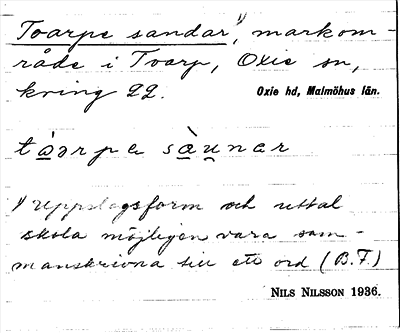 Toarpe sandar 1), markom-
råde i Toarp, Oxie sn,
kring 22.
Oxie hd, Malmöhus län.
tòarpa sàunar
1) Uppslagsform och uttal
skola möjligen vara sam-
manskrivna till ett ord (B.F.)
NILS NILSSON 1936.